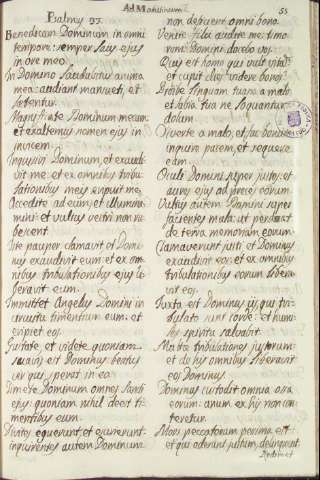 Ad Matutinum
53
Psalmus 33.
Benedicam Dominum in omni
tempore: semper laus ejus
in ore meo.
In Domino laudabitur anima
mea: audiant mansueti, et
letentur.
Magnificate Dominum mecum:
et exaltemus nomen ejus in
invicem.
Inquisivi Dominum, et exaudi-
vit me: et ex omnibus tribu-
lationibus meis eripuit me.
Accedite ad eum, et illumina-
mini: et vultus vestri non confun-
Iste pauper clamavit et Domi-
nus exaudivit eum: et ex om-
nibus tribulationibus ejus sal-
vavit eum.
Immittet Angelus Domini in
circuitu timentium eum: et
eripiet eos.
Gustate, et videte quoniam
suavis est Dominus: beatus
vir qui sperat in eo.
Timete Dominum omnes Sancti
ejus: quoniam nihil deest ti-
mentibus eum.
Divites eguerunt, et esurierunt:
inquirentes autem Dominum
non deficient omni bono.
Venite filii audite me: timo-
rem Domini docebo vos.
Quis est homo qui vult vitam:
et cupit dies videre bonos?
Proibe linguam tuam a malo:
et labia tua ne loquantur
dolum.
Diverte a malo, et fac bonum:
inquire pacem, et sequere
eam.
Oculi Domini super justos: et
aures ejus ad preces eorum.
Vultus autem Domini super
facientes mala: ut perdat
de terra memoriam eorum.
Clamaverunt justi et Dominus
exaudivit eos: et ex omnibus
tribulationibus eorum libera-
vit eos.
Juxta est Dominus iis, qui tri-
bulato sunt corde: et humi-
les spiritu salvabit.
Multæ tribulationes justorum:
et de his omnibus liberavit
eos Dominus.
Dominus custodit omnia ossa
eorum: unum ex his non con-
teretur.
Mors peccatorum pessima est:
et qui oderunt justum, delinquent.
Redimet